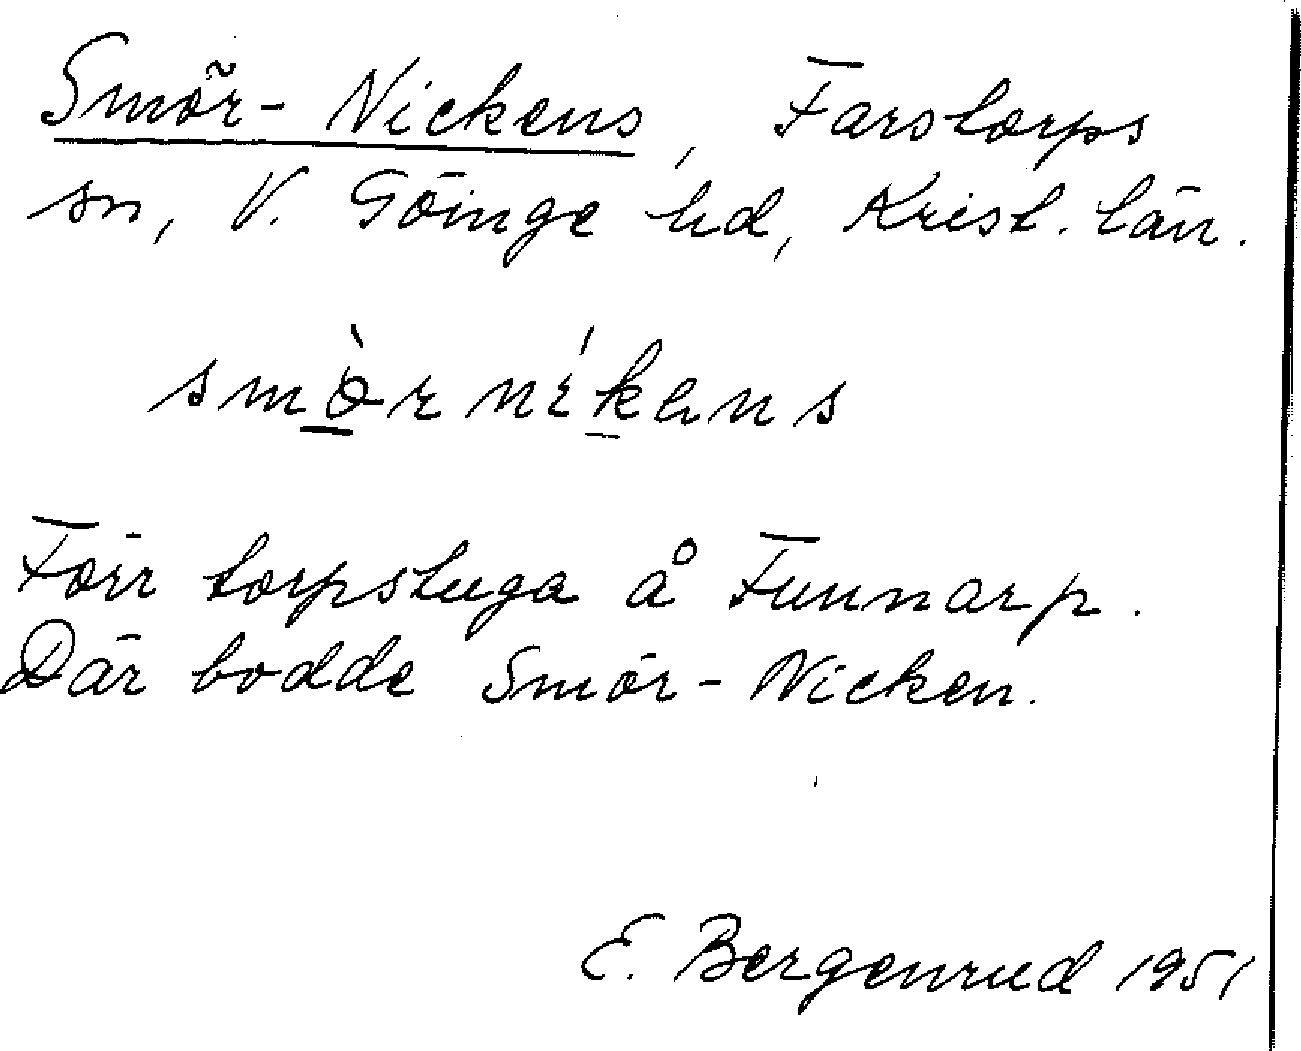 Smör-Nickens, Farstorps
sn, V. Göinge hd, Krist. län.
smø̀r nı́kəns
Förr torpstuga å Funnarp.
Där bodde Smör-Nicken.
E. Bergenrud 1951